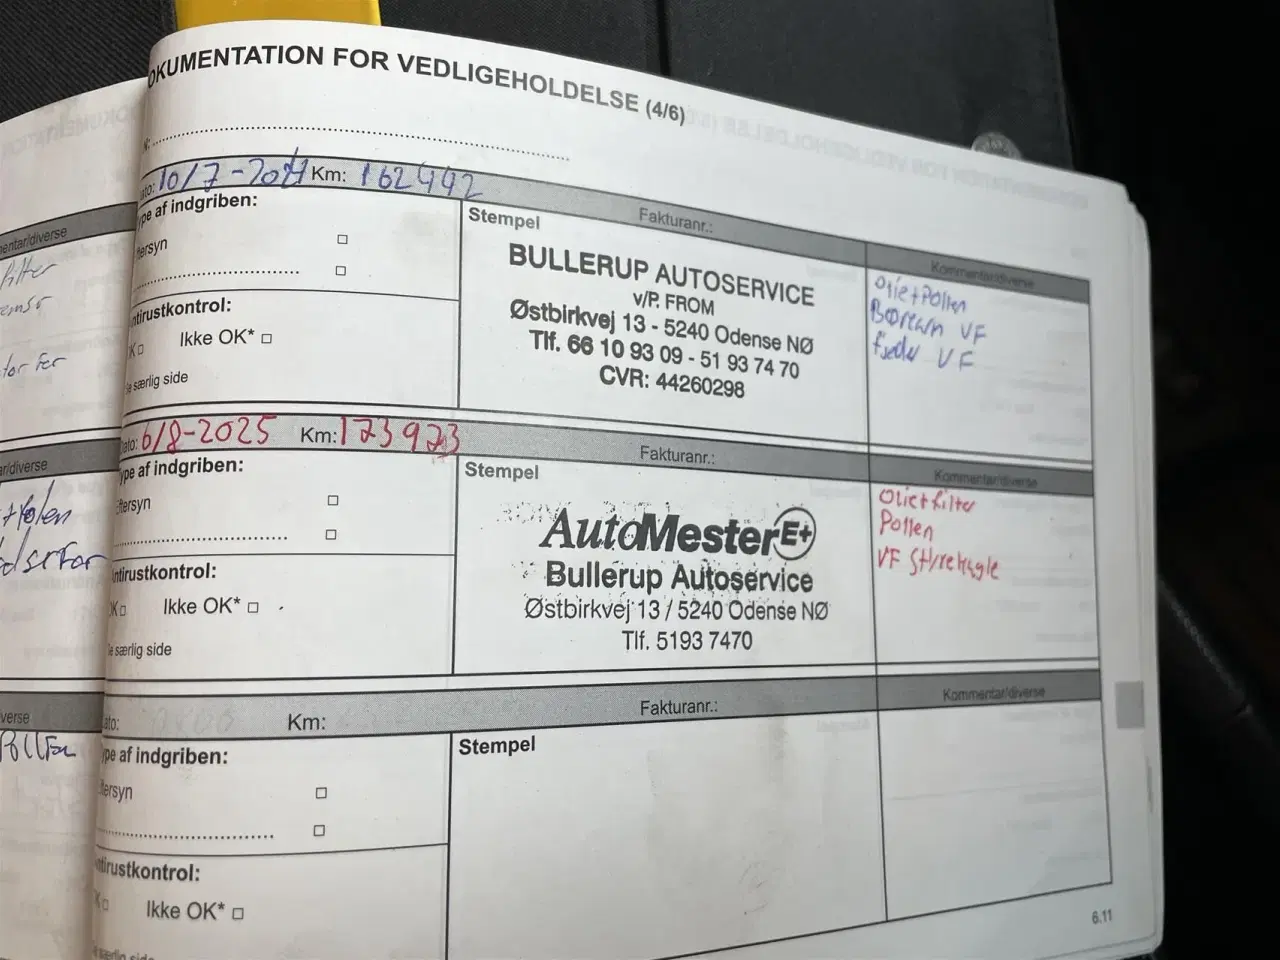 OKUMENTATION FOR VEDLIGEHOLDELSE (4/6)
ato: 10/7-2024 Km: 162442
ype af indgriben:
Stempel
Fakturanr.:
Kommentar/diverse
ftersyn
ntirustkontrol:
K
Ikke OK*
e særlig side
BULLERUP AUTOSERVICE
v/P. FROM
Østbirkvej 13 - 5240 Odense NØ
Tlf. 66 10 93 09 - 51 93 74 70
CVR: 44260298
Olie+Pollen
Bærearm VF
fjeder VF
ato: 6/8-2025 Km: 173973
ype af indgriben:
Stempel
Fakturanr.:
Kommentar/diverse
ftersyn
ntirustkontrol:
K
Ikke OK*
e særlig side
AutoMester E+
Bullerup Autoservice
Østbirkvej 13 / 5240 Odense NØ
Tlf. 5193 7470
Olie+filter
Pollen
VF Styrekugle
ato:
Km:
Fakturanr.:
Kommentar/diverse
ype af indgriben:
Stempel
ftersyn
ntirustkontrol:
K
Ikke OK*
e særlig side
6.11
entar/diverse
filter
tor For
ar/diverse
verse